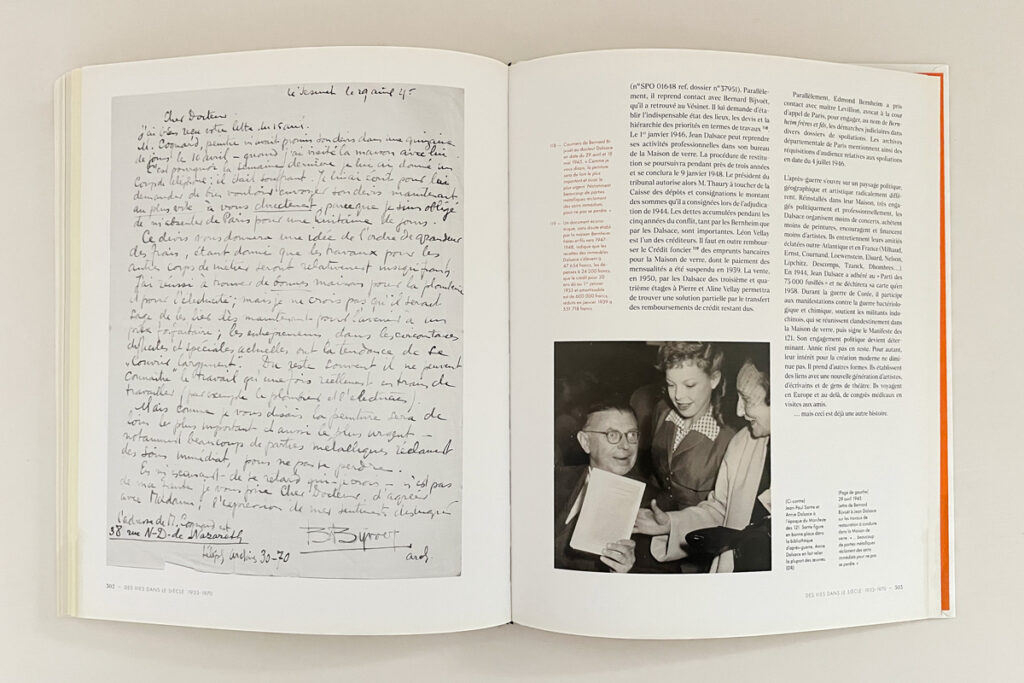 le Vésinet le 29 avril 45
Cher Docteur
j'ai bien reçu votre lettre du 15 avril.
M. Cognard, peintre m'avait promis son devis dans une quinzaine
de jours le 10 avril – quand j'ai visité la maison avec lui.
C'est pourquoi la semaine dernière je lui ai donné un
Coup de téléphone; il était souffrant. Je lui ai écrit pour lui
demander de bien vouloir envoyer son devis maintenant
au plus vite à vous directement, puisque je suis obligé
de m'absenter de Paris pour une quinzaine de jours.
Ce devis vous donnera une idée de l'ordre de grandeur
des frais, étant donné que les travaux pour les
autres corps de métier seront relativement insignifiants.
J'ai réussi à trouver de bonnes maisons pour la plomberie
et pour l'électricité; mais je ne crois pas qu'il serait
sage de les lier dès maintenant pour l'avenir à un
prix forfaitaire; les entrepreneurs dans les circonstances
difficiles et spéciales actuelles ont la tendance de se
"couvrir largement". Du reste souvent il ne peuvent
connaître le travail qu'une fois réellement en train de
travailler (par exemple le plombier et l'électricien).
Mais comme je vous disais la peinture sera de
loin le plus important et aussi le plus urgent –
notamment beaucoup de parties métalliques réclament
des soins immédiat, pour ne pas se perdre.
En m'excusant de ce retard qui n'est pas
de ma faute je vous prie Cher Docteur, d'agréer
avec Madame, l'expression de mes sentiments distingués
L'adresse de M. Cognard est
38 rue N-D-de Nazareth
téléph. archives 30-70
B. Bijvoet
arch.
302 — DES VIES DANS LE SIÈCLE 1933-1970
(n° SPO 01648 ref. dossier n° 37951). Parallèle-
ment, il reprend contact avec Bernard Bijvoët,
qu'il a retrouvé au Vésinet. Il lui demande d'éta-
blir l'indispensable état des lieux, les devis et la
hiérarchie des priorités en termes de travaux 118.
Le 1er janvier 1946, Jean Dalsace peut reprendre
ses activités professionnelles dans son bureau
de la Maison de verre. La procédure de restitu-
tion se poursuivra pendant près de trois années
et se conclura le 9 janvier 1948. Le président du
tribunal autorise alors M. Thaury à toucher de la
Caisse des dépôts et consignations le montant
des sommes qu'il a consignées lors de l'adjudica-
tion de 1944. Les dettes accumulées pendant les
cinq années du conflit, tant par les Bernheim que
par les Dalsace, sont importantes. Léon Vellay
est l'un des créditeurs. Il faut en outre rembour-
ser le Crédit foncier 119 des emprunts bancaires
pour la Maison de verre, dont le paiement des
mensualités a été suspendu en 1939. La vente,
en 1950, par les Dalsace des troisième et qua-
trième étages à Pierre et Aline Vellay permettra
de trouver une solution partielle par le transfert
des remboursements de crédit restant dus.
118 — Courriers de Bernard Bi-
jvoët au docteur Dalsace
en date du 29 avril et 18
mai 1945. « Comme je
vous disais, la peinture
sera de loin le plus
important et aussi le
plus urgent. Notamment
beaucoup de parties
métalliques réclament
des soins immédiats,
pour ne pas se perdre. »
119 — Un document écono-
mique, sans doute établi
par la maison Bernheim
frères et fils vers 1947-
1948, indique que les
recettes des immeubles
Dalsace s'élèvent à
47 634 francs, les dé-
penses à 26 200 francs,
que le crédit pour 30
ans dû au 1er janvier
1933 et amortissable
est de 600 000 francs,
réduits en janvier 1939 à
551 718 francs.
Parallèlement, Edmond Bernheim a pris
contact avec maître Levillion, avocat à la cour
d'appel de Paris, pour engager, au nom de Bern-
heim frères et fils, les démarches judiciaires dans
divers dossiers de spoliations. Les archives
départementale de Paris mentionnent ainsi des
réquisitions d'audience relatives aux spoliations
en date du 4 juillet 1946.
L'après-guerre s'ouvre sur un paysage politique,
géographique et artistique radicalement diffé-
rent. Réinstallés dans leur Maison, très enga-
gés politiquement et professionnellement, les
Dalsace organisent moins de concerts, achètent
moins de peintures, encouragent et financent
moins d'artistes. Ils entretiennent leurs amitiés
éclatées outre-Atlantique et en France (Milhaud,
Ernst, Cournand, Loewenstein, Eluard, Nelson,
Lipchitz, Descomps, Tzanck, Dhombres…)
En 1944, Jean Dalsace a adhéré au « Parti des
75 000 fusillés » et ne déchirera sa carte qu'en
1958. Durant la guerre de Corée, il participe
aux manifestations contre la guerre bactériolo-
gique et chimique, soutient les militants indo-
chinois, qui se réunissent clandestinement dans
la Maison de verre, puis signe le Manifeste des
121. Son engagement politique devient déter-
minant. Annie n'est pas en reste. Pour autant,
leur intérêt pour la création moderne ne dimi-
nue pas. Il prend d'autres formes. Ils établissent
des liens avec une nouvelle génération d'artistes,
d'écrivains et de gens de théâtre. Ils voyagent
en Europe et au delà, de congrès médicaux en
visites aux amis.
… mais ceci est déjà une autre histoire.
(Ci-contre)
Jean-Paul Sartre et
Annie Dalsace à
l'époque du Manifeste
des 121. Sartre figure
en bonne place dans
la bibliothèque
d'après-guerre. Annie
Dalsace en fait relier
la plupart des œuvres.
(DR)
(Page de gauche)
29 avril 1945
Lettre de Bernard
Bijvoët à Jean Dalsace
sur les travaux de
restauration à conduire
dans la Maison de
verre. « … beaucoup
de parties métalliques
réclament des soins
immédiats pour ne pas
se perdre. »
DES VIES DANS LE SIÈCLE 1933-1970 — 303